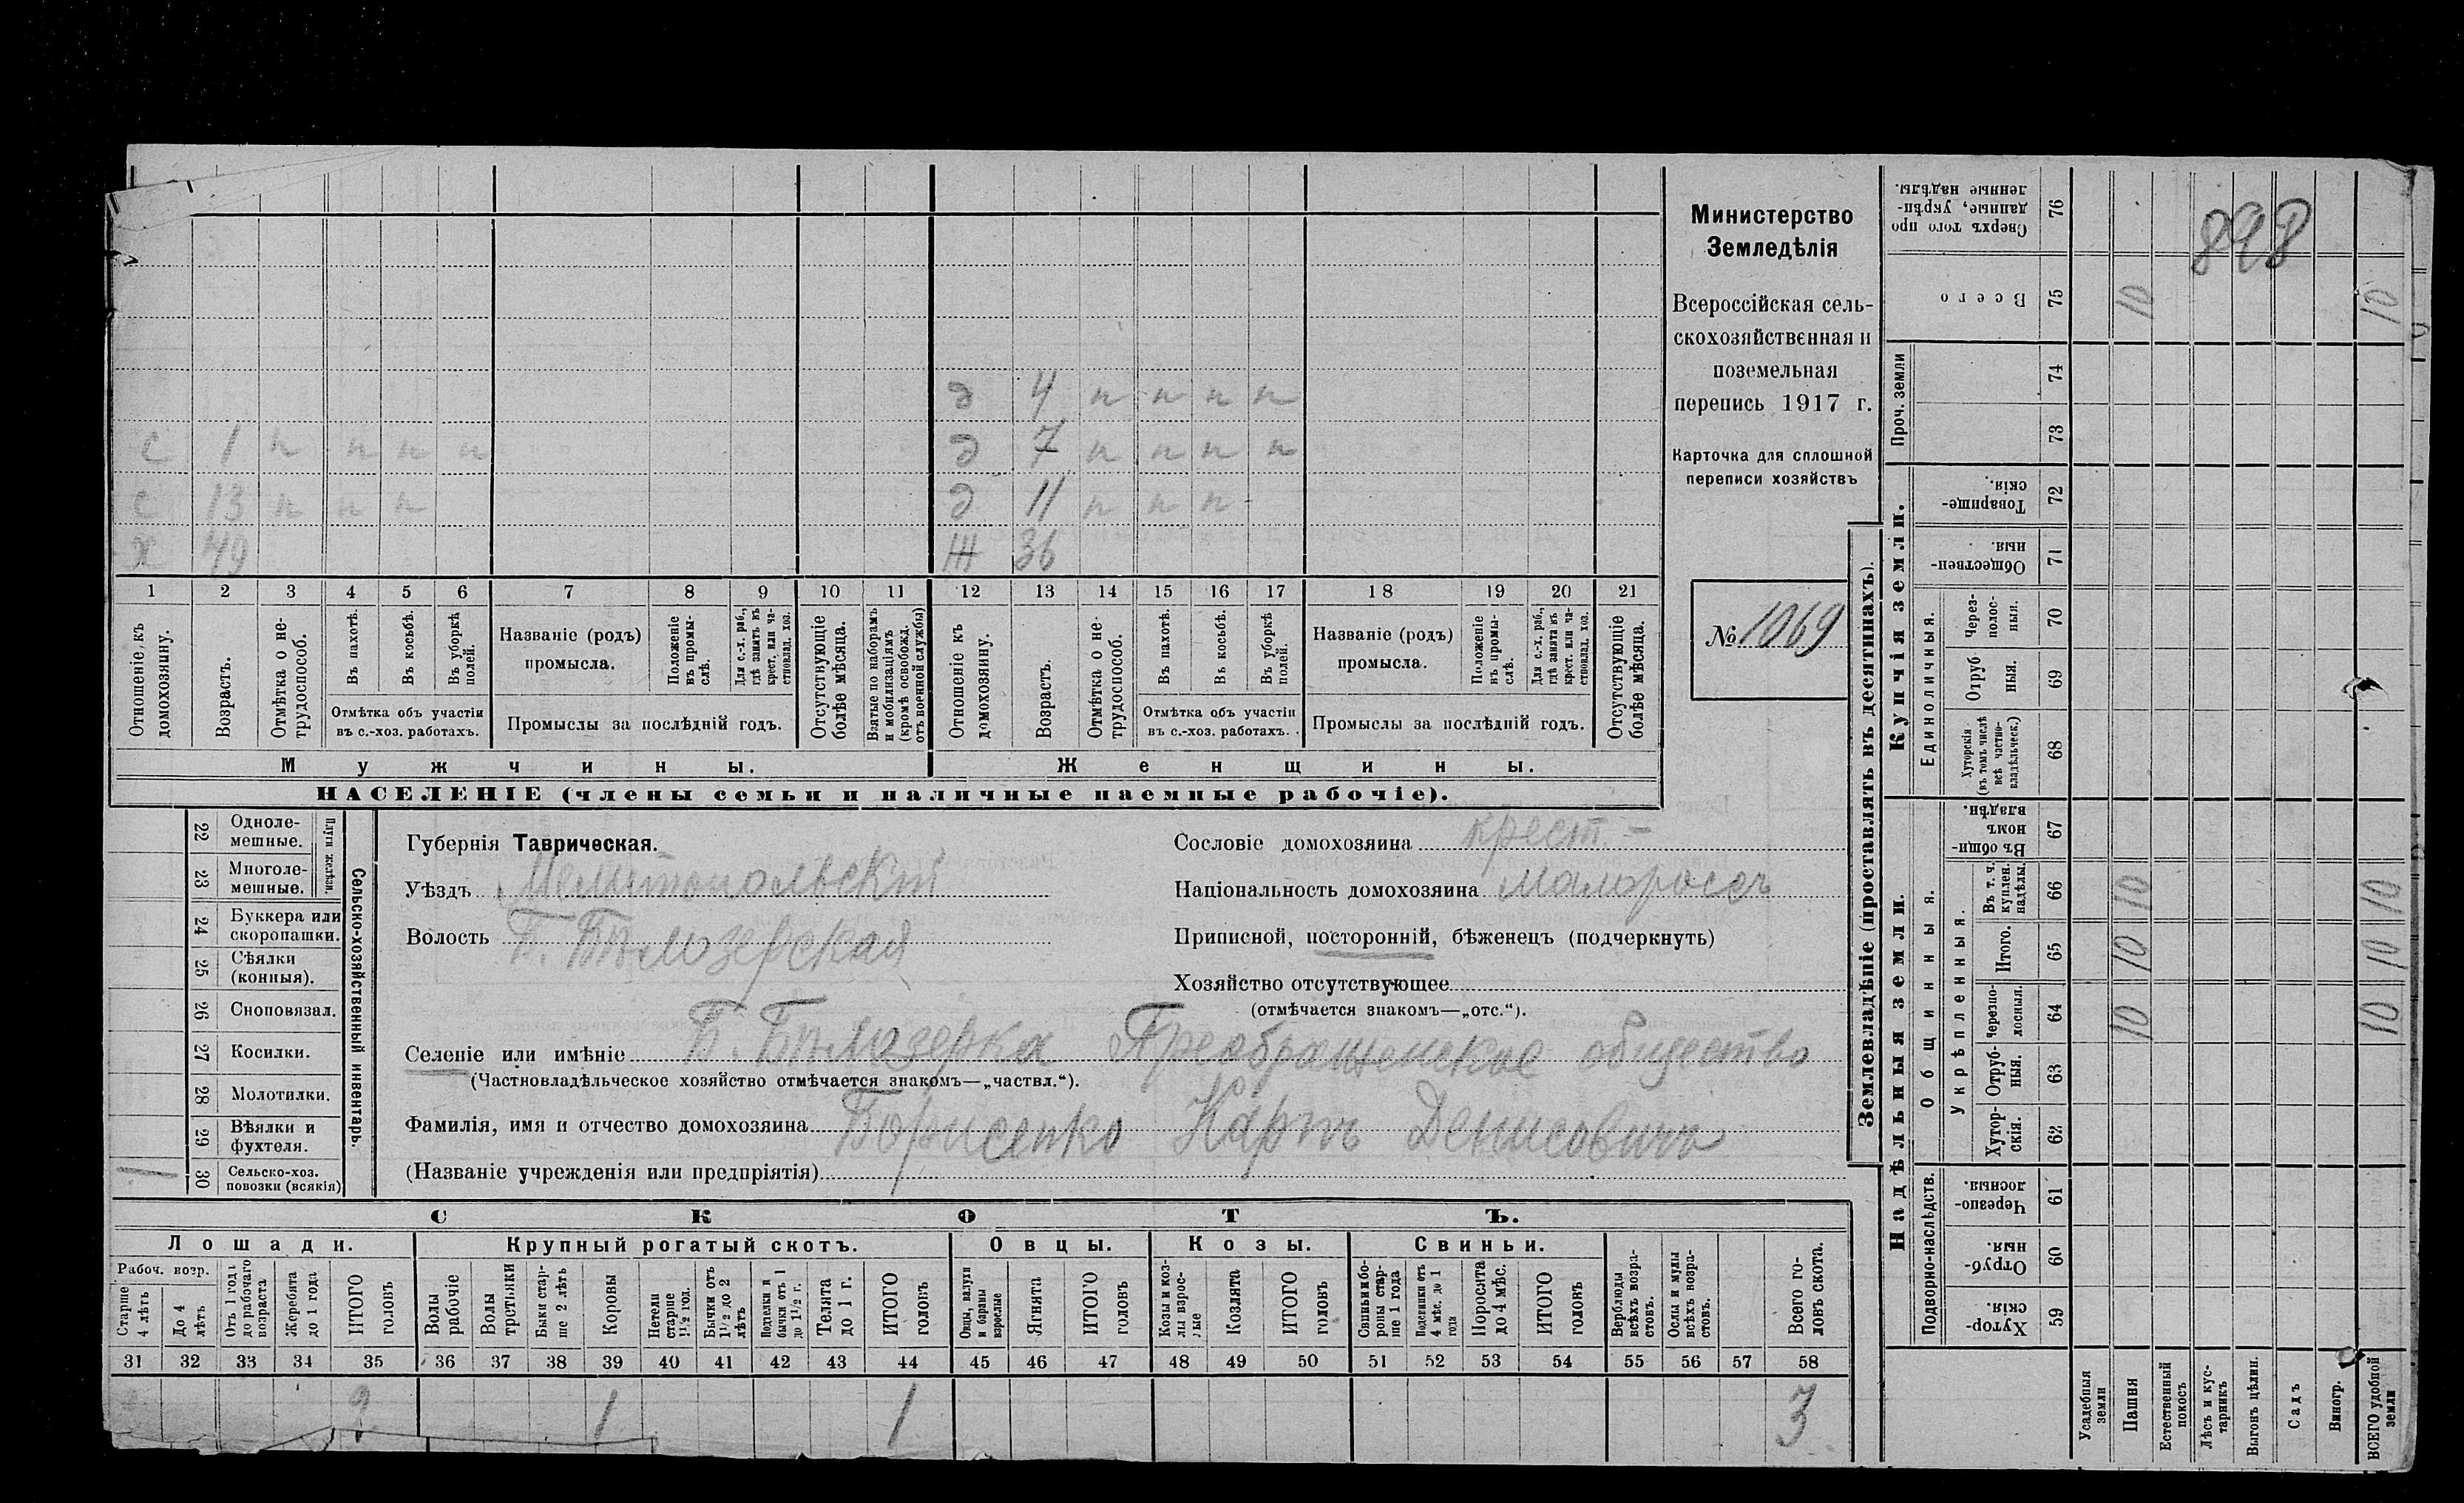 Министерство
Земледѣлія
Всероссійская сель-
скохозяйственная и
поземельная
перепись 1917 г.
Карточка для сплошной
переписи хозяйствъ
№ 1069
д 4 п п п п
с 1 п п п п д 7 п п п п
с 13 п п п д 11 п п п
х 49 Ж 36
1 2 3 4 5 6 7 8 9 10 11 12 13 14 15 16 17 18 19 20 21
Отношеніе къ домохозяину.
Возрастъ.
Отмѣтка о не-трудоспособ.
Въ пахотѣ.
Въ косьбѣ.
Въ уборкѣ полей.
Отмѣтка объ участіи
въ с.-хоз. работахъ.
Названіе (родъ)
промысла.
Положеніе въ промы-слѣ.
Для с.-х. раб., гдѣ занятъ въ крест. или ча-стновлад. хоз.
Промыслы за послѣдній годъ.
Отсутствующіе болѣе мѣсяца.
Взятые по наборамъ и мобилизаціямъ (кромѣ освобожд. отъ военной службы)
Отношеніе къ домохозяину.
Возрастъ.
Отмѣтка о не-трудоспособ.
Въ пахотѣ.
Въ косьбѣ.
Въ уборкѣ полей.
Отмѣтка объ участіи
въ с.-хоз. работахъ.
Названіе (родъ)
промысла.
Положеніе въ промы-слѣ.
Для с.-х. раб., гдѣ занята въ крест. или ча-стновлад. хоз.
Промыслы за послѣдній годъ.
Отсутствующіе болѣе мѣсяца.
Мужчины. Женщины.
НАСЕЛЕНІЕ (члены семьи и наличные наемные рабочіе).
Сельско-хозяйственный инвентарь.
Плуги желѣзн.
22 Одноле-мешные.
23 Многоле-мешные.
24 Буккера или скоропашки.
25 Сѣялки (конныя).
26 Сноповязал.
27 Косилки.
28 Молотилки.
29 Вѣялки и фухтеля.
1 30 Сельско-хоз. повозки (всякія)
Губернія Таврическая.
Уѣздъ Мелитопольскій
Волость Б. Бѣлозерская
Сословіе домохозяина крест.
Національность домохозяина малороссъ
Приписной, посторонній, бѣженецъ (подчеркнуть)
Хозяйство отсутствующее
(отмѣчается знакомъ—„отс.“).
Селеніе или имѣніе Б. Бѣлозерка Преображенское общество
(Частновладѣльческое хозяйство отмѣчается знакомъ—„частвл.“).
Фамилія, имя и отчество домохозяина Борисенко Карпъ Денисовичъ
(Названіе учрежденія или предпріятія)
СКОТЪ.
Лошади. Крупный рогатый скотъ. Овцы. Козы. Свиньи.
Рабоч. возр.
Старше 4 лѣтъ
До 4 лѣтъ
Отъ 1 года до рабочаго возраста
Жеребята до 1 года
ИТОГО головъ
Волы рабочіе
Волы третьяки
Быки стар-ше 2 лѣтъ
Коровы
Нетели старше 1½ год.
Бычки отъ 1½ до 2 лѣтъ
Подтелки и бычки отъ 1 до 1½ г.
Телята до 1 г.
ИТОГО головъ
Овцы, валухи и бараны взрослые
Ягнята
ИТОГО головъ
Козы и коз-лы взрос-лые
Козлята
ИТОГО головъ
Свиньи и бо-ровы стар-ше 1 года
Подсвинки отъ 4 мѣс. до 1 года
Поросята до 4 мѣс.
ИТОГО головъ
Верблюды всѣхъ возра-стовъ.
Ослы и мулы всѣхъ возра-стовъ.
Всего го-ловъ скота.
31 32 33 34 35 36 37 38 39 40 41 42 43 44 45 46 47 48 49 50 51 52 53 54 55 56 57 58
2 1 1 3
Землевладѣніе (проставлять въ десятинахъ).
Надѣльныя земли. Купчія земли. Проч. земли
Подворно-наслѣдств. Общинныя. Укрѣпленныя. Единоличныя.
76 Сверхъ того про-данные, укрѣп-ленные надѣлы.
898
75 Всего 10 10
74
73
72 Товарище-скія.
71 Обществен-ныя.
70 Через-полос-ныя.
69 Отруб-ныя.
68 Хуторскія (въ томъ числѣ всѣ частно-владѣльческ.)
67 Въ общи-номъ владѣн.
66 Въ т. ч. куплен. надѣлы 10 10
65 Итого. 10 10
64 Черезпо-лосныя. 10 10
63 Отруб-ныя.
62 Хутор-скія.
61 Черезпо-лосныя.
60 Отруб-ныя.
59 Хутор-скія.
Усадебныя земли
Пашня
Естественный покосъ
Лѣсъ и кус-тарникъ
Выгонъ цѣлин.
Садъ
Виногр.
ВСЕГО удобной земли